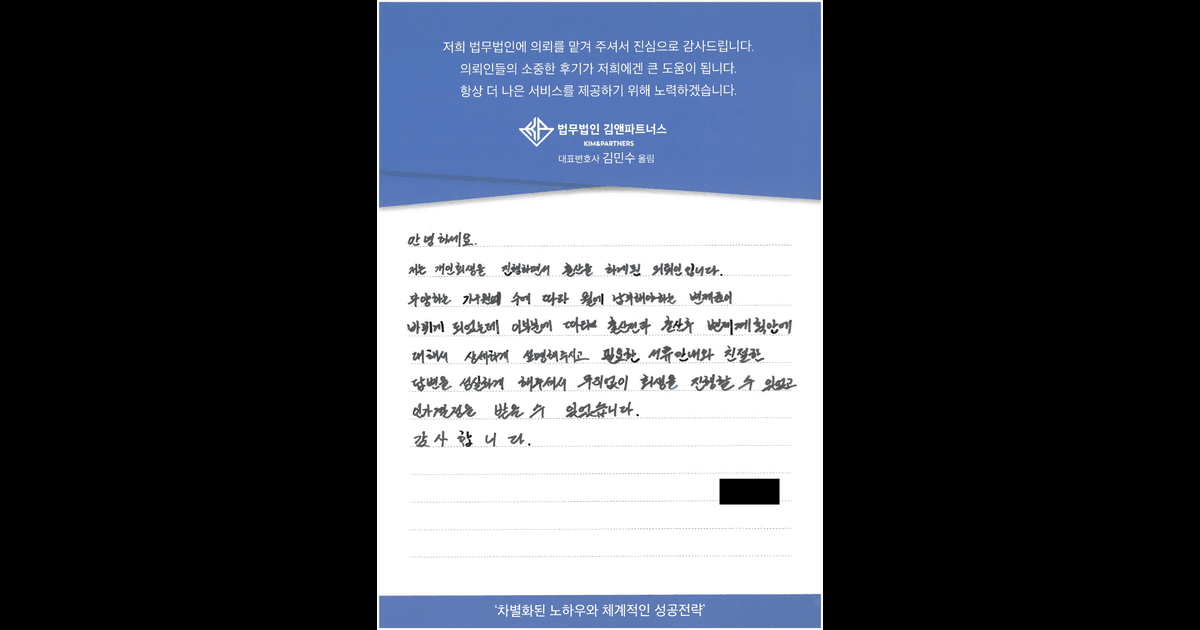 저희 법무법인에 의뢰를 맡겨 주셔서 진심으로 감사드립니다.
의뢰인들의 소중한 후기가 저희에겐 큰 도움이 됩니다.
항상 더 나은 서비스를 제공하기 위해 노력하겠습니다.
법무법인 김앤파트너스
KIM&PARTNERS
대표변호사 김민수 올림
안녕하세요.
저는 개인회생을 진행하면서 출산을 하게된 의뢰인입니다.
부양하는 가구원의 수에 따라 월에 납부해야하는 변제금이
바뀌게 되었는데 이부분에 따라 출산전과 출산후 변제계획안에
대해서 상세하게 설명해주시고 필요한 서류안내와 친절한
답변을 성실하게 해주셔서 무리없이 회생을 진행할 수 있었고
인가결정을 받을 수 있었습니다.
감사합니다.
'차별화된 노하우와 체계적인 성공전략'